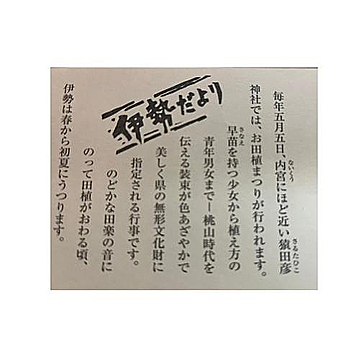 伊勢だより
毎年五月五日、内宮にほど近い猿田彦
神社では、お田植まつりが行われます。
早苗を持つ少女から植え方の
青年男女まで―桃山時代を
伝える装束が色あざやかで
美しく県の無形文化財に
指定される行事です。
のどかな田楽の音に
のって田植がおわる頃、
伊勢は春から初夏にうつります。